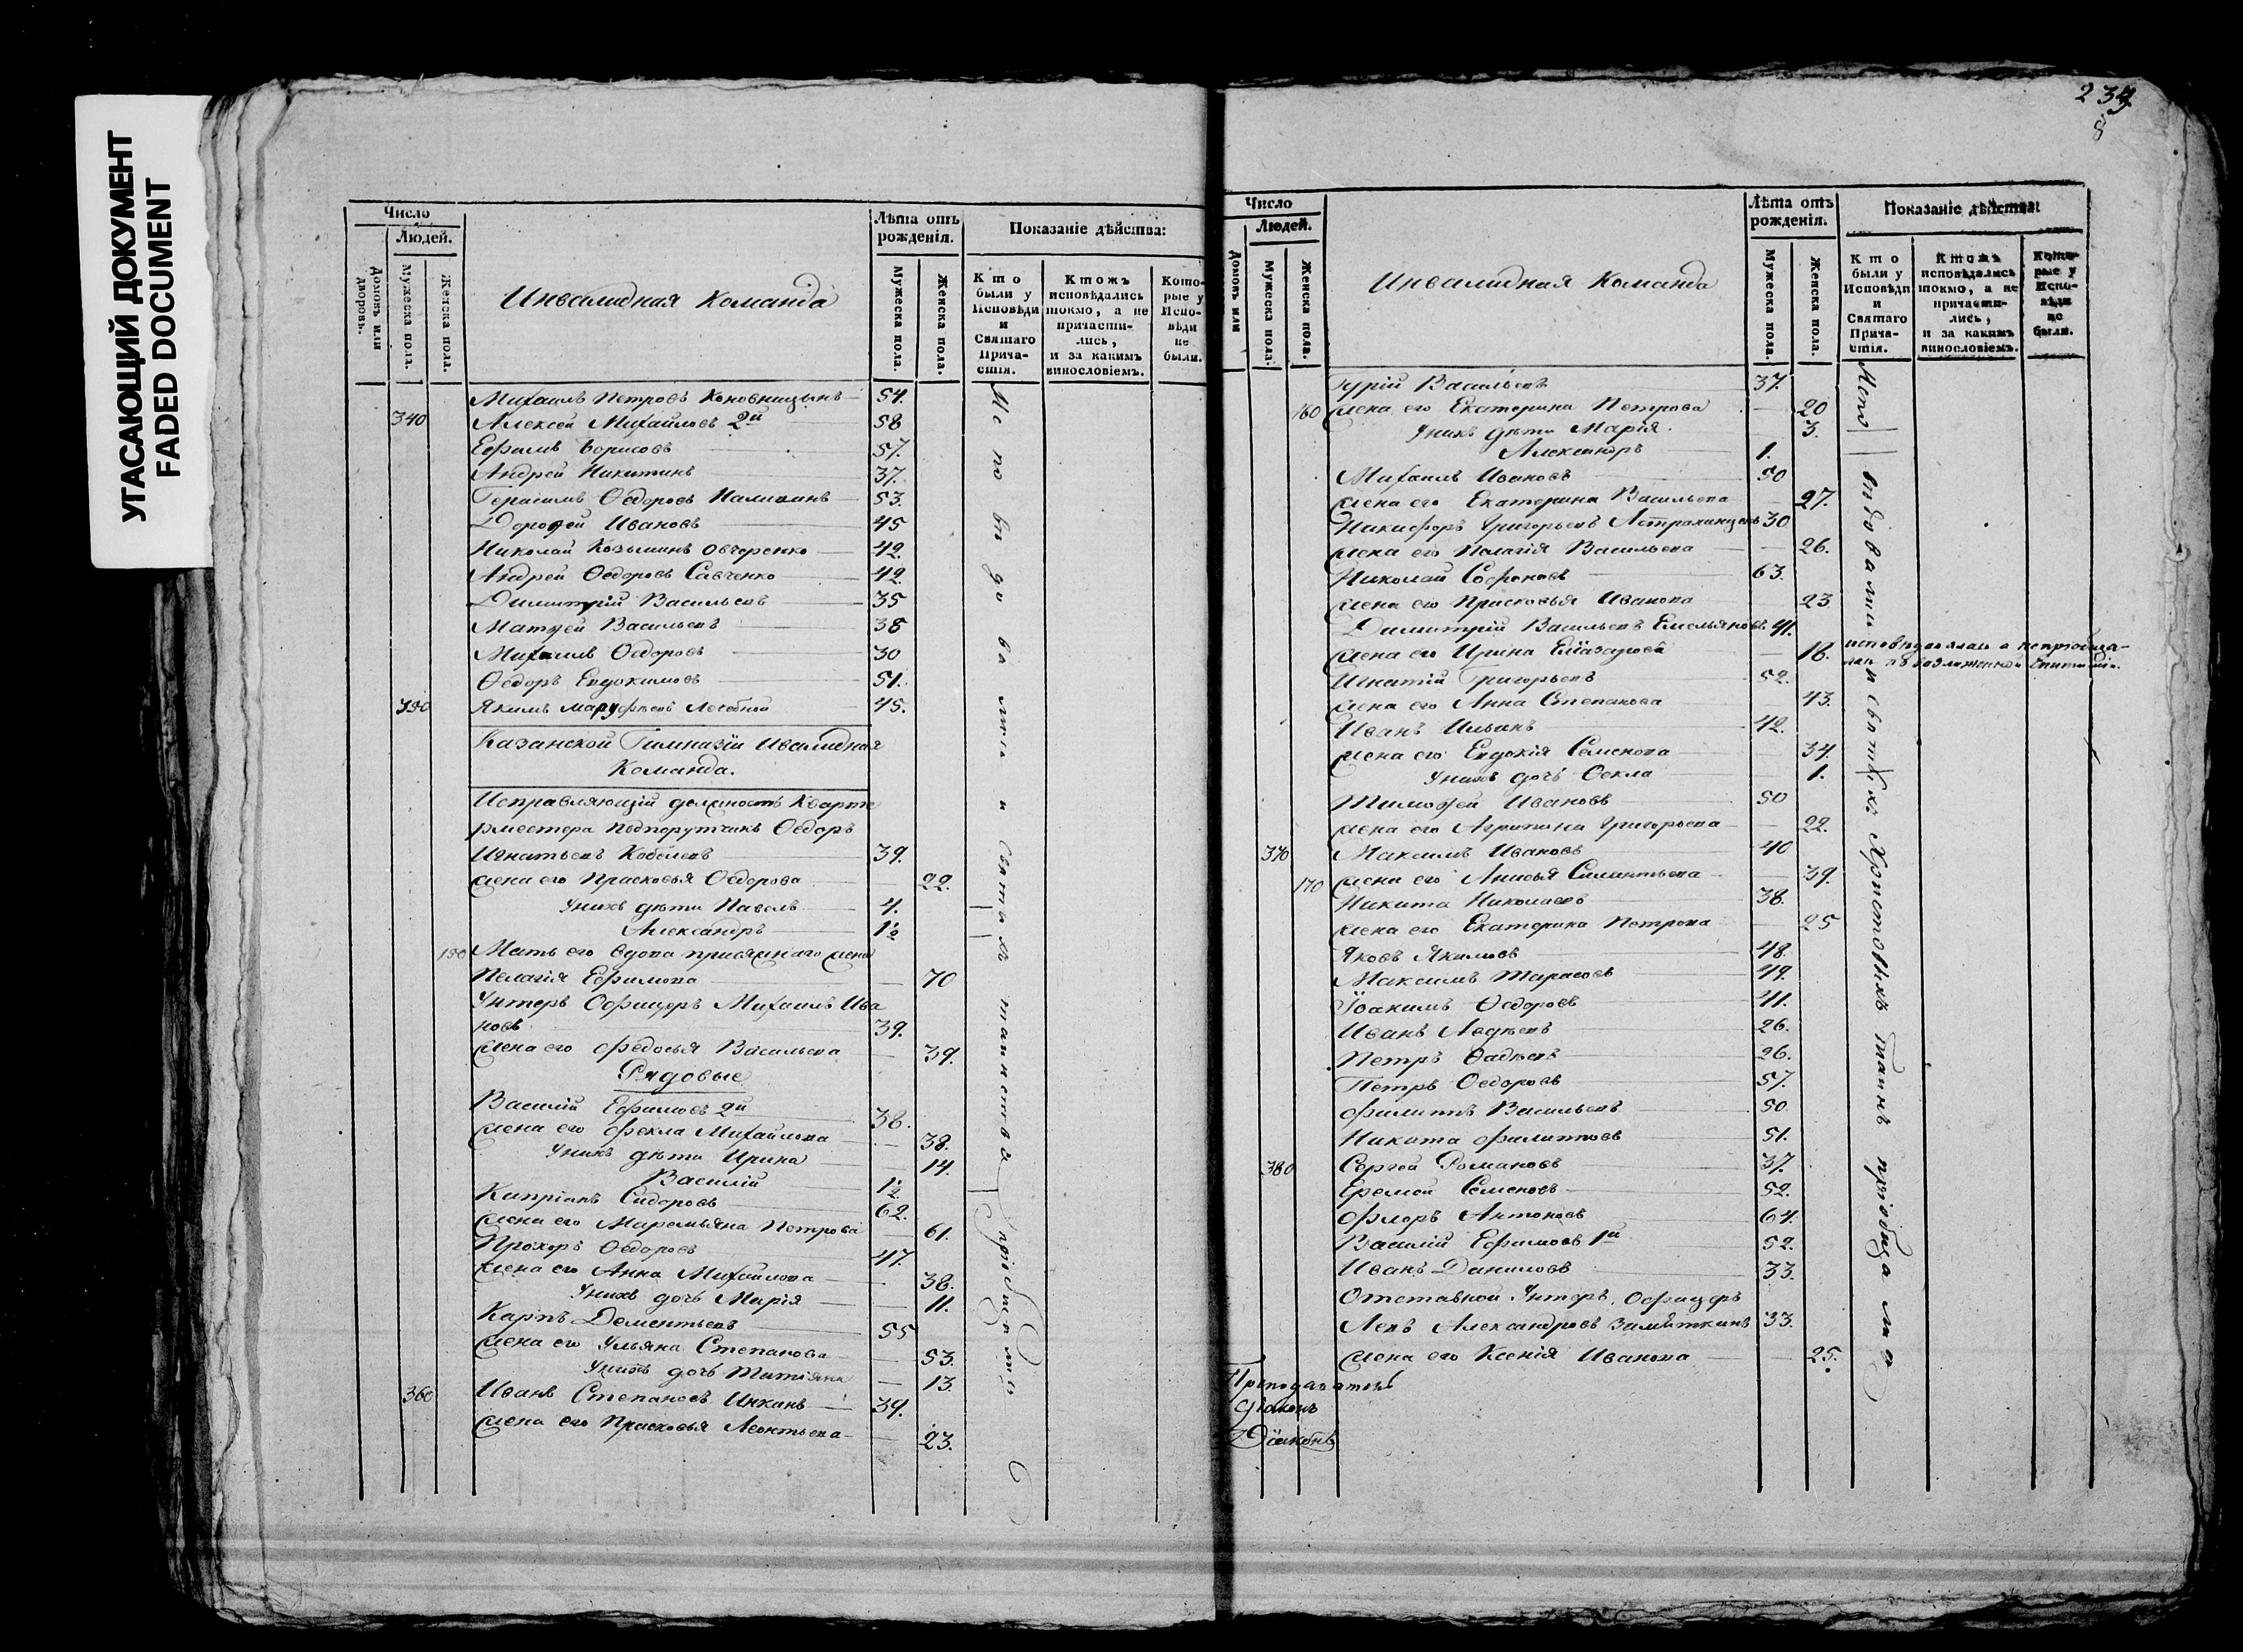 УГАСАЮЩИЙ ДОКУМЕНТ
FADED DOCUMENT
Число
Людей.
Домовъ или дворовъ.
Мужеска пола.
Женска пола.
Инвалидная Команда
Лѣта отъ рожденія.
Мужеска пола.
Женска пола.
Показаніе дѣйства:
Кто были у Исповѣди и Святаго Причастія.
Ктожъ исповѣдались токмо, а не причастились, и за какимъ винословіемъ.
Которые у Исповѣди не были.
Михаилъ Петровъ Коновницынъ 54.
340 Алексей Михайловъ 2й 58
Ефимъ Борисовъ 57.
Андрей Никитинъ 37.
Герасимъ Ѳедоровъ 53.
Дороѳей Ивановъ 45
Николай Козьминъ Овчеренко 42.
Андрей Ѳедоровъ Савченко 42.
Димитрій Васильевъ 35
Матѳей Васильевъ 38
Михаилъ Ѳедоровъ 30
Ѳедоръ Евдокимовъ 51.
350 Якимъ 45.
Казанской Гимназіи Инвалидная
Команда.
Исправляющій должность Кварте
рместера Подпорутчикъ Ѳедоръ
Игнатьевъ Кобелевъ 39.
жена его Прасковья Ѳедорова 22.
У нихъ дѣти Павелъ 4.
Александръ 1½
150 Мать его вдова присяжнаго жена
Пелагія Ефимова 70
Унтеръ Офицеръ Михаилъ Ива
новъ 39.
жена его Федосья Васильева 39.
Рядовые
Василій Ефимовъ 2й 38.
жена его Фекла Михайлова 38.
У нихъ дѣти Ирина 14.
Василій 1½
Кипріянъ Сидоровъ 62.
жена его Маремьяна Петрова 61.
Прохоръ Ѳедоровъ 47.
жена его Анна Михайлова 38.
У нихъ дочь Марія 11.
Карпъ Дементьевъ 55
жена его Ульяна Степанова 53.
У нихъ дочь Татіяна 13.
360 Иванъ Степановъ Инкинъ 39.
жена его Прасковья Леонтьева 23.
Исповѣдовались и Святыхъ таинствъ пріобщались
239
8
Число
Людей.
Домовъ или
Мужеска пола.
Женска пола.
Инвалидная Команда
Лѣта отъ рожденія.
Мужеска пола.
Женска пола.
Показаніе дѣйства:
Кто были у Исповѣди и Святаго Причастія.
Ктожъ исповѣдались токмо, а не причастились, и за какимъ винословіемъ.
Которые у Исповѣди не были.
Гурій Васильевъ 37.
160 жена его Екатерина Петрова 20
У нихъ дѣти Марія 3.
Александръ 1.
Михаилъ Ивановъ 50
жена его Екатерина Васильева 27.
Никифоръ Григорьевъ Астраханцевъ 30
жена его Пелагія Васильева 26.
Николай Софроновъ 63.
жена его Прасковья Иванова 23
Димитрій Васильевъ Емельяновъ 41.
жена его Ирина Елїазарова 18.
Игнатій Григорьевъ 52.
жена его Анна Степанова 43.
Иванъ Ильинъ 42.
жена его Евдокія Семенова 34.
У нихъ дочь Ѳекла 1.
Тимоѳей Ивановъ 50
жена его Агрипина Григорьева 22.
370 Максимъ Ивановъ 40
170 жена его Анисья Силантьева 39.
Никита Николаевъ 38.
жена его Екатерина Петрова 25
Яковъ Якимовъ 48.
Максимъ Тарасовъ 49.
Їоакимъ Ѳедоровъ 41.
Иванъ Авдѣевъ 26.
Петръ Ѳадѣевъ 26.
Петръ Ѳедоровъ 57.
Филиппъ Васильевъ 50.
Никита Филипповъ 51.
380 Сергей Романовъ 37.
Еремей Семеновъ 52.
Флоръ Антоновъ 64.
Василій Ефимовъ 1й 52.
Иванъ Даниловъ 33.
Отставной Унтеръ Офицеръ
Левъ Александровъ 33.
жена его Ксенія Иванова 25.
Исповѣдовались и Святыхъ Христовыхъ Таинъ пріобщались
Діаконъ